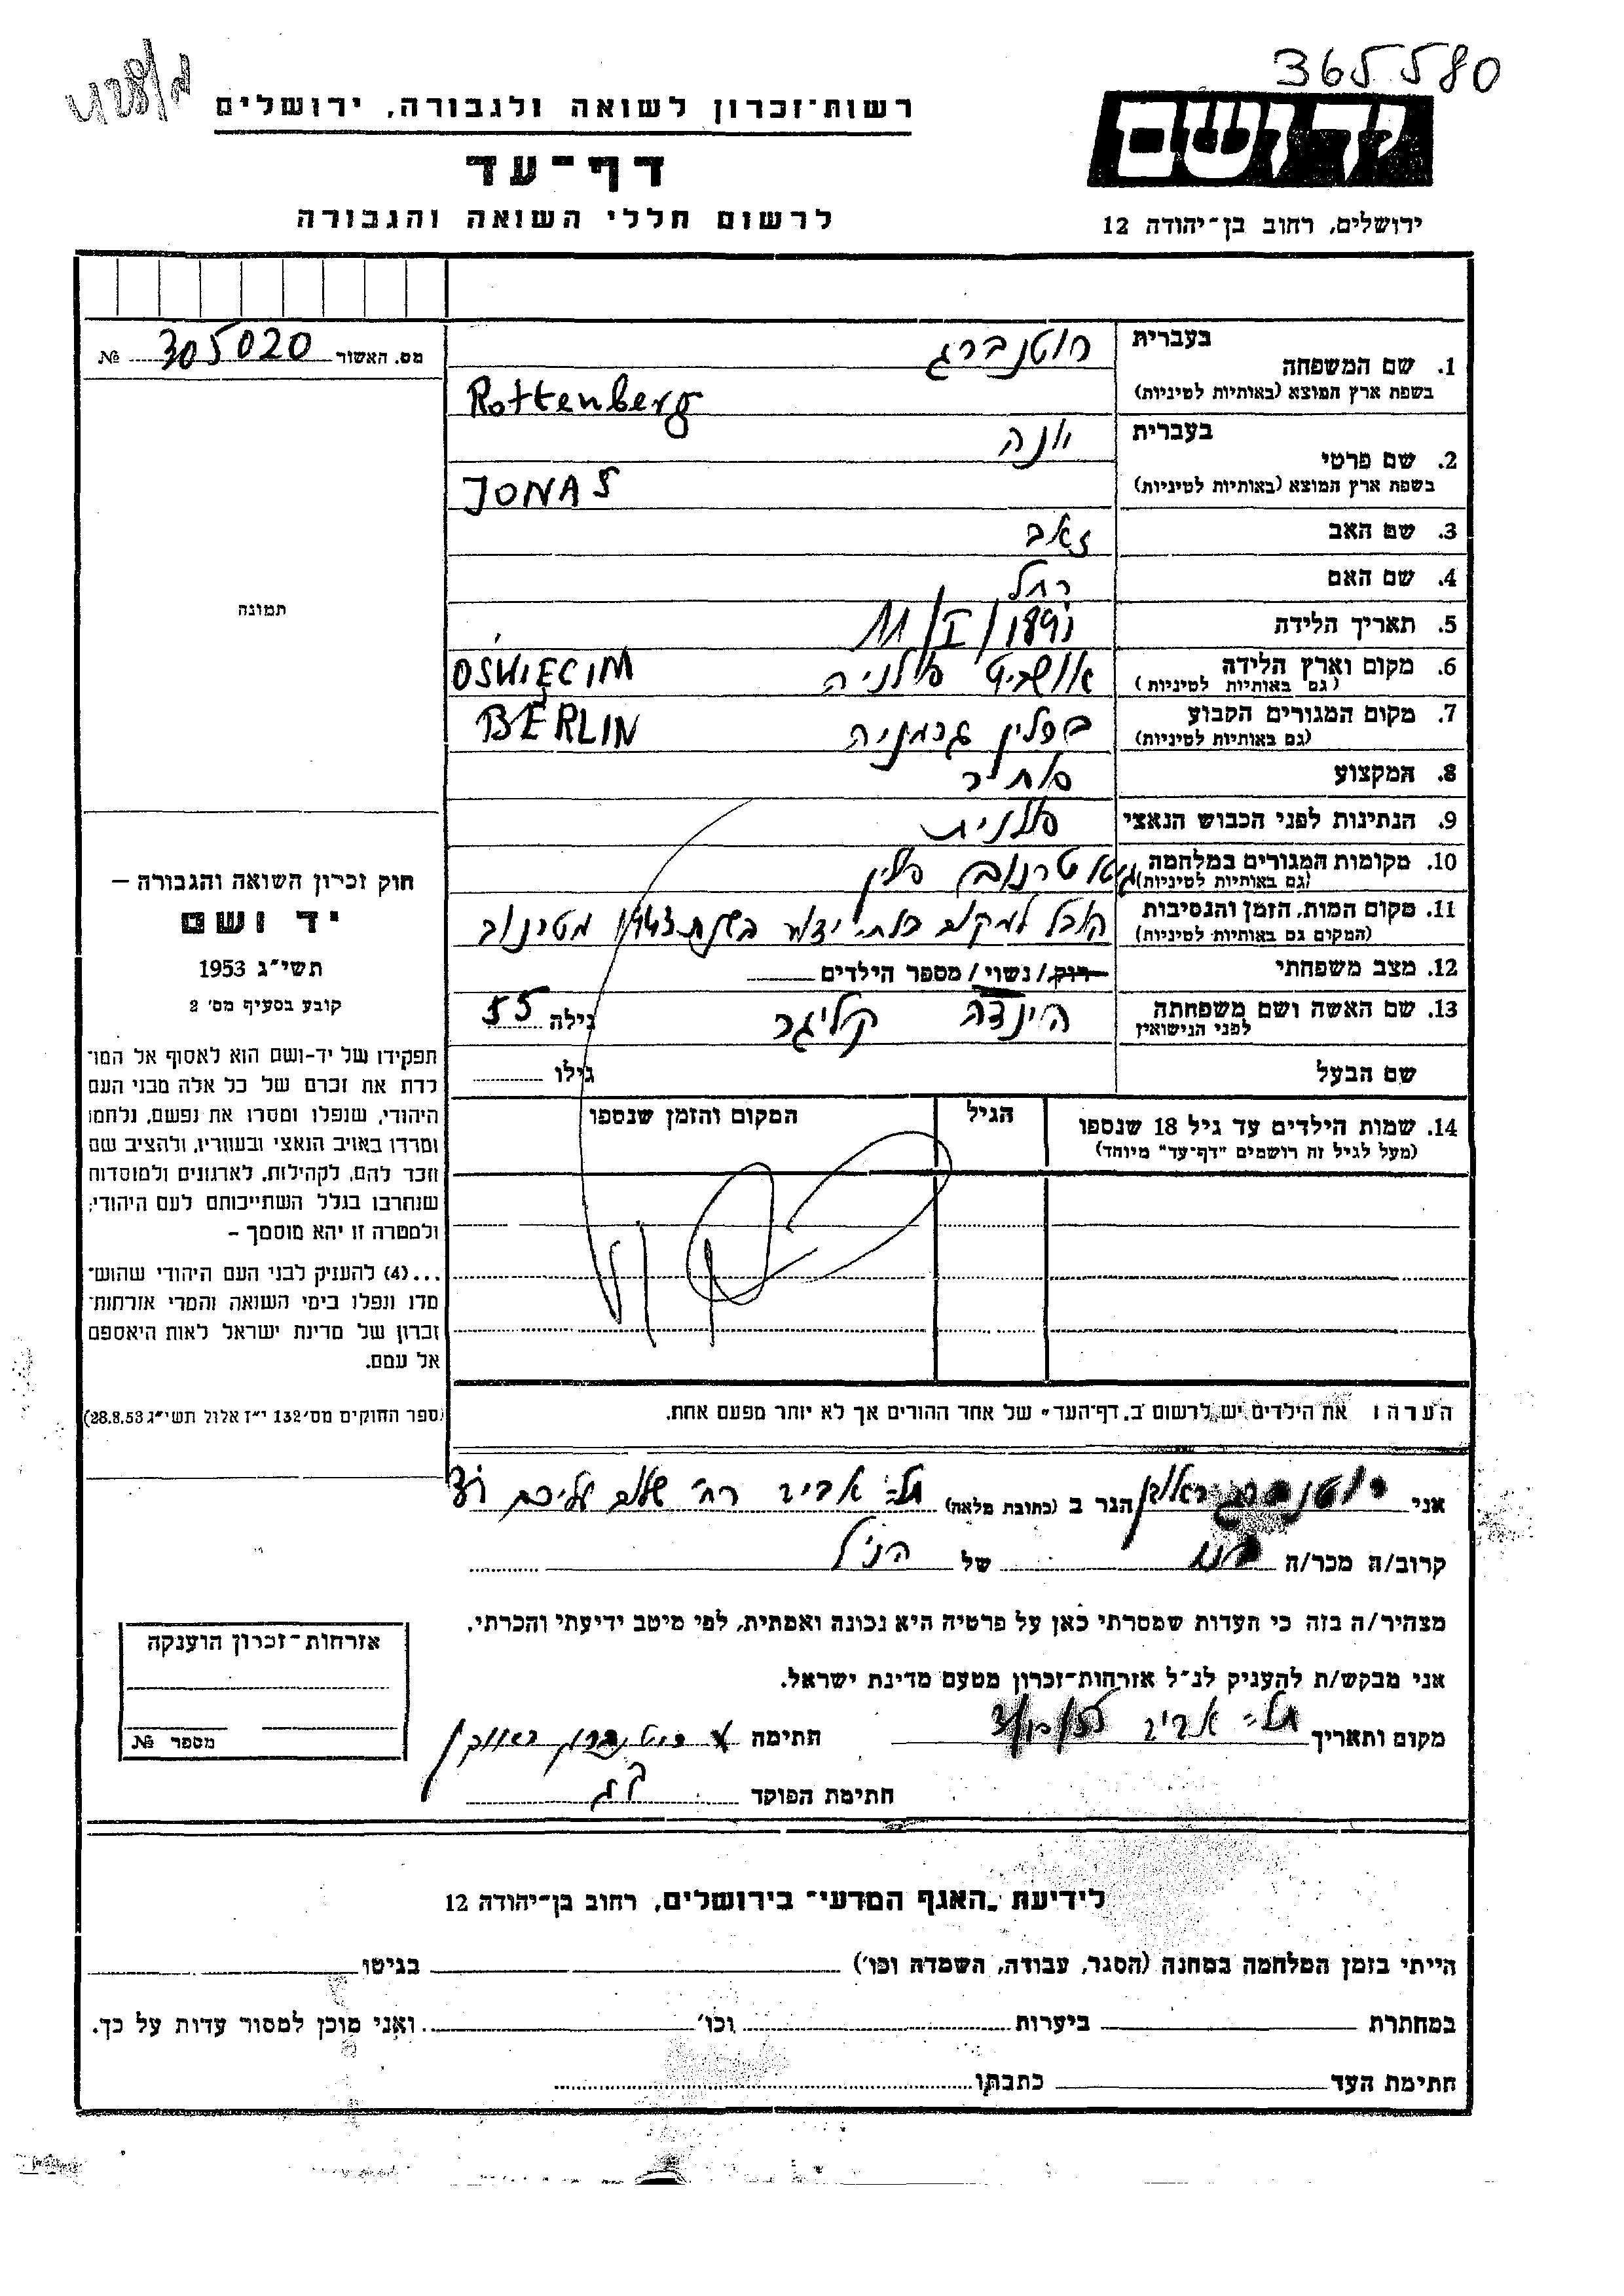 365580
רשות־זכרון לשואה ולגבורה, ירושלים
יד ושם
דף־עד
לרשום חללי השואה והגבורה
ירושלים, רחוב בן־יהודה 12
מס. האשור 305020 №
בעברית רוטנברג
1. שם המשפחה
בשפת ארץ המוצא (באותיות לטיניות) Rottenberg
בעברית יונה
2. שם פרטי
בשפת ארץ המוצא (באותיות לטיניות) JONAS
3. שם האב זאב
4. שם האם רחל
5. תאריך הלידה 11/I/1891
6. מקום וארץ הלידה פולניה OŚWIĘCIM
(גם באותיות לטיניות)
7. מקום המגורים הקבוע ברלין גרמניה BERLIN
(גם באותיות לטיניות)
8. המקצוע סוחר
9. הנתינות לפני הכבוש הנאצי פולנית
10. מקומות המגורים במלחמה גיטו טרנוב פולין
(גם באותיות לטיניות)
11. מקום המות, הזמן והנסיבות הובל למקום בלתי ידוע בשנת 1943 מטרנוב
(המקום גם באותיות לטיניות)
12. מצב משפחתי רווק/נשוי/מספר הילדים
13. שם האשה ושם משפחתה הינדה קליגר גילה 55
לפני הנישואין
שם הבעל גילו
14. שמות הילדים עד גיל 18 שנספו הגיל המקום והזמן שנספו
(מעל לגיל זה רושמים "דף־עד" מיוחד)
הערה: את הילדים יש לרשום ב„דף־העד" של אחד ההורים אך לא יותר מפעם אחת.
תמונה
חוק זכרון השואה והגבורה –
יד ושם
תשי"ג 1953
קובע בסעיף מס' 2
תפקידו של יד-ושם הוא לאסוף אל המו־
לדת את זכרם של כל אלה מבני העם
היהודי, שנפלו ומסרו את נפשם, נלחמו
ומרדו באויב הנאצי ובעוזריו, ולהציב שם
וזכר להם, לקהילות, לארגונים ולמוסדות
שנחרבו בגלל השתייכותם לעם היהודי;
ולמטרה זו יהא מוסמך –
...(4) להעניק לבני העם היהודי שהוש־
מדו ונפלו בימי השואה והמרי אזרחות־
זכרון של מדינת ישראל לאות היאספם
אל עמם.
(ספר החוקים מס' 132 י"ז אלול תשי"ג 28.8.53)
אני רוטנברג ראובן הגר ב (כתובת מלאה) תל־אביב רח' שלום עליכם
קרוב/ה מכר/ה בנו של הנ"ל
מצהיר/ה בזה כי העדות שמסרתי כאן על פרטיה היא נכונה ואמתית, לפי מיטב ידיעתי והכרתי.
אני מבקש/ת להעניק לנ"ל אזרחות־זכרון מטעם מדינת ישראל.
מקום ותאריך תל־אביב חתימה רוטנברג ראובן
חתימת הפוקד
אזרחות־זכרון הוענקה
מספר №
לידיעת „האגף המדעי" בירושלים, רחוב בן־יהודה 12
הייתי בזמן המלחמה במחנה (הסגר, עבודה, השמדה וכו') בגיטו
במחתרת ביערות וכו' ואני מוכן למסור עדות על כך.
חתימת העד כתבתו